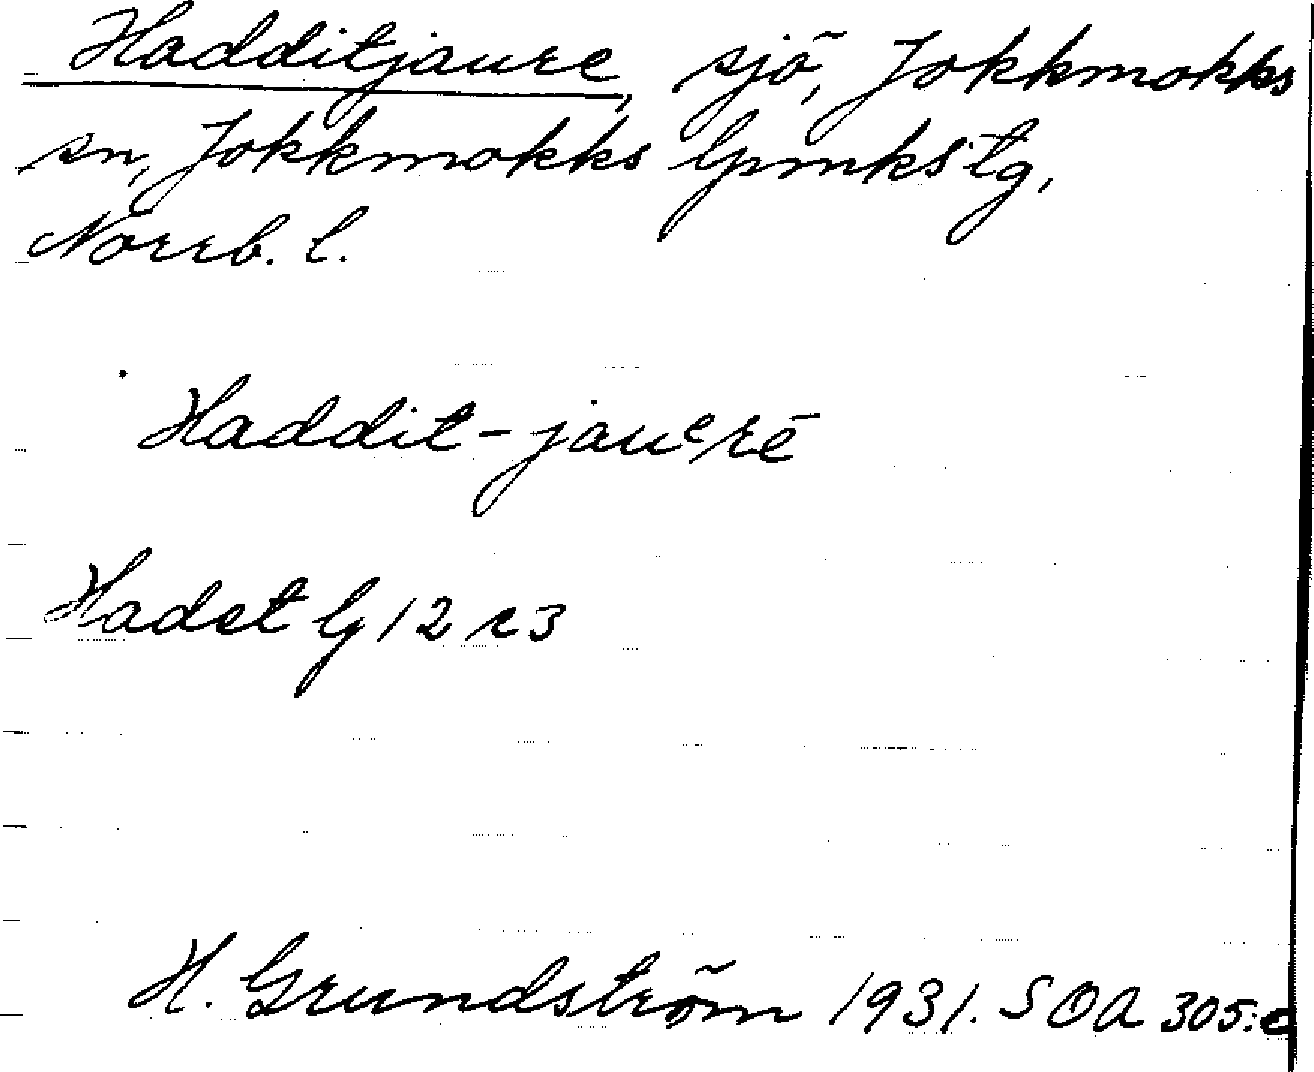 Hadditjaure, sjö, Jokkmokks
sn, Jokkmokks lpmkstg,
Norrb. l.
Haddit-jauᵉrē
Hadet lg 12 r 3
H. Grundström 1931. SOA 305:c